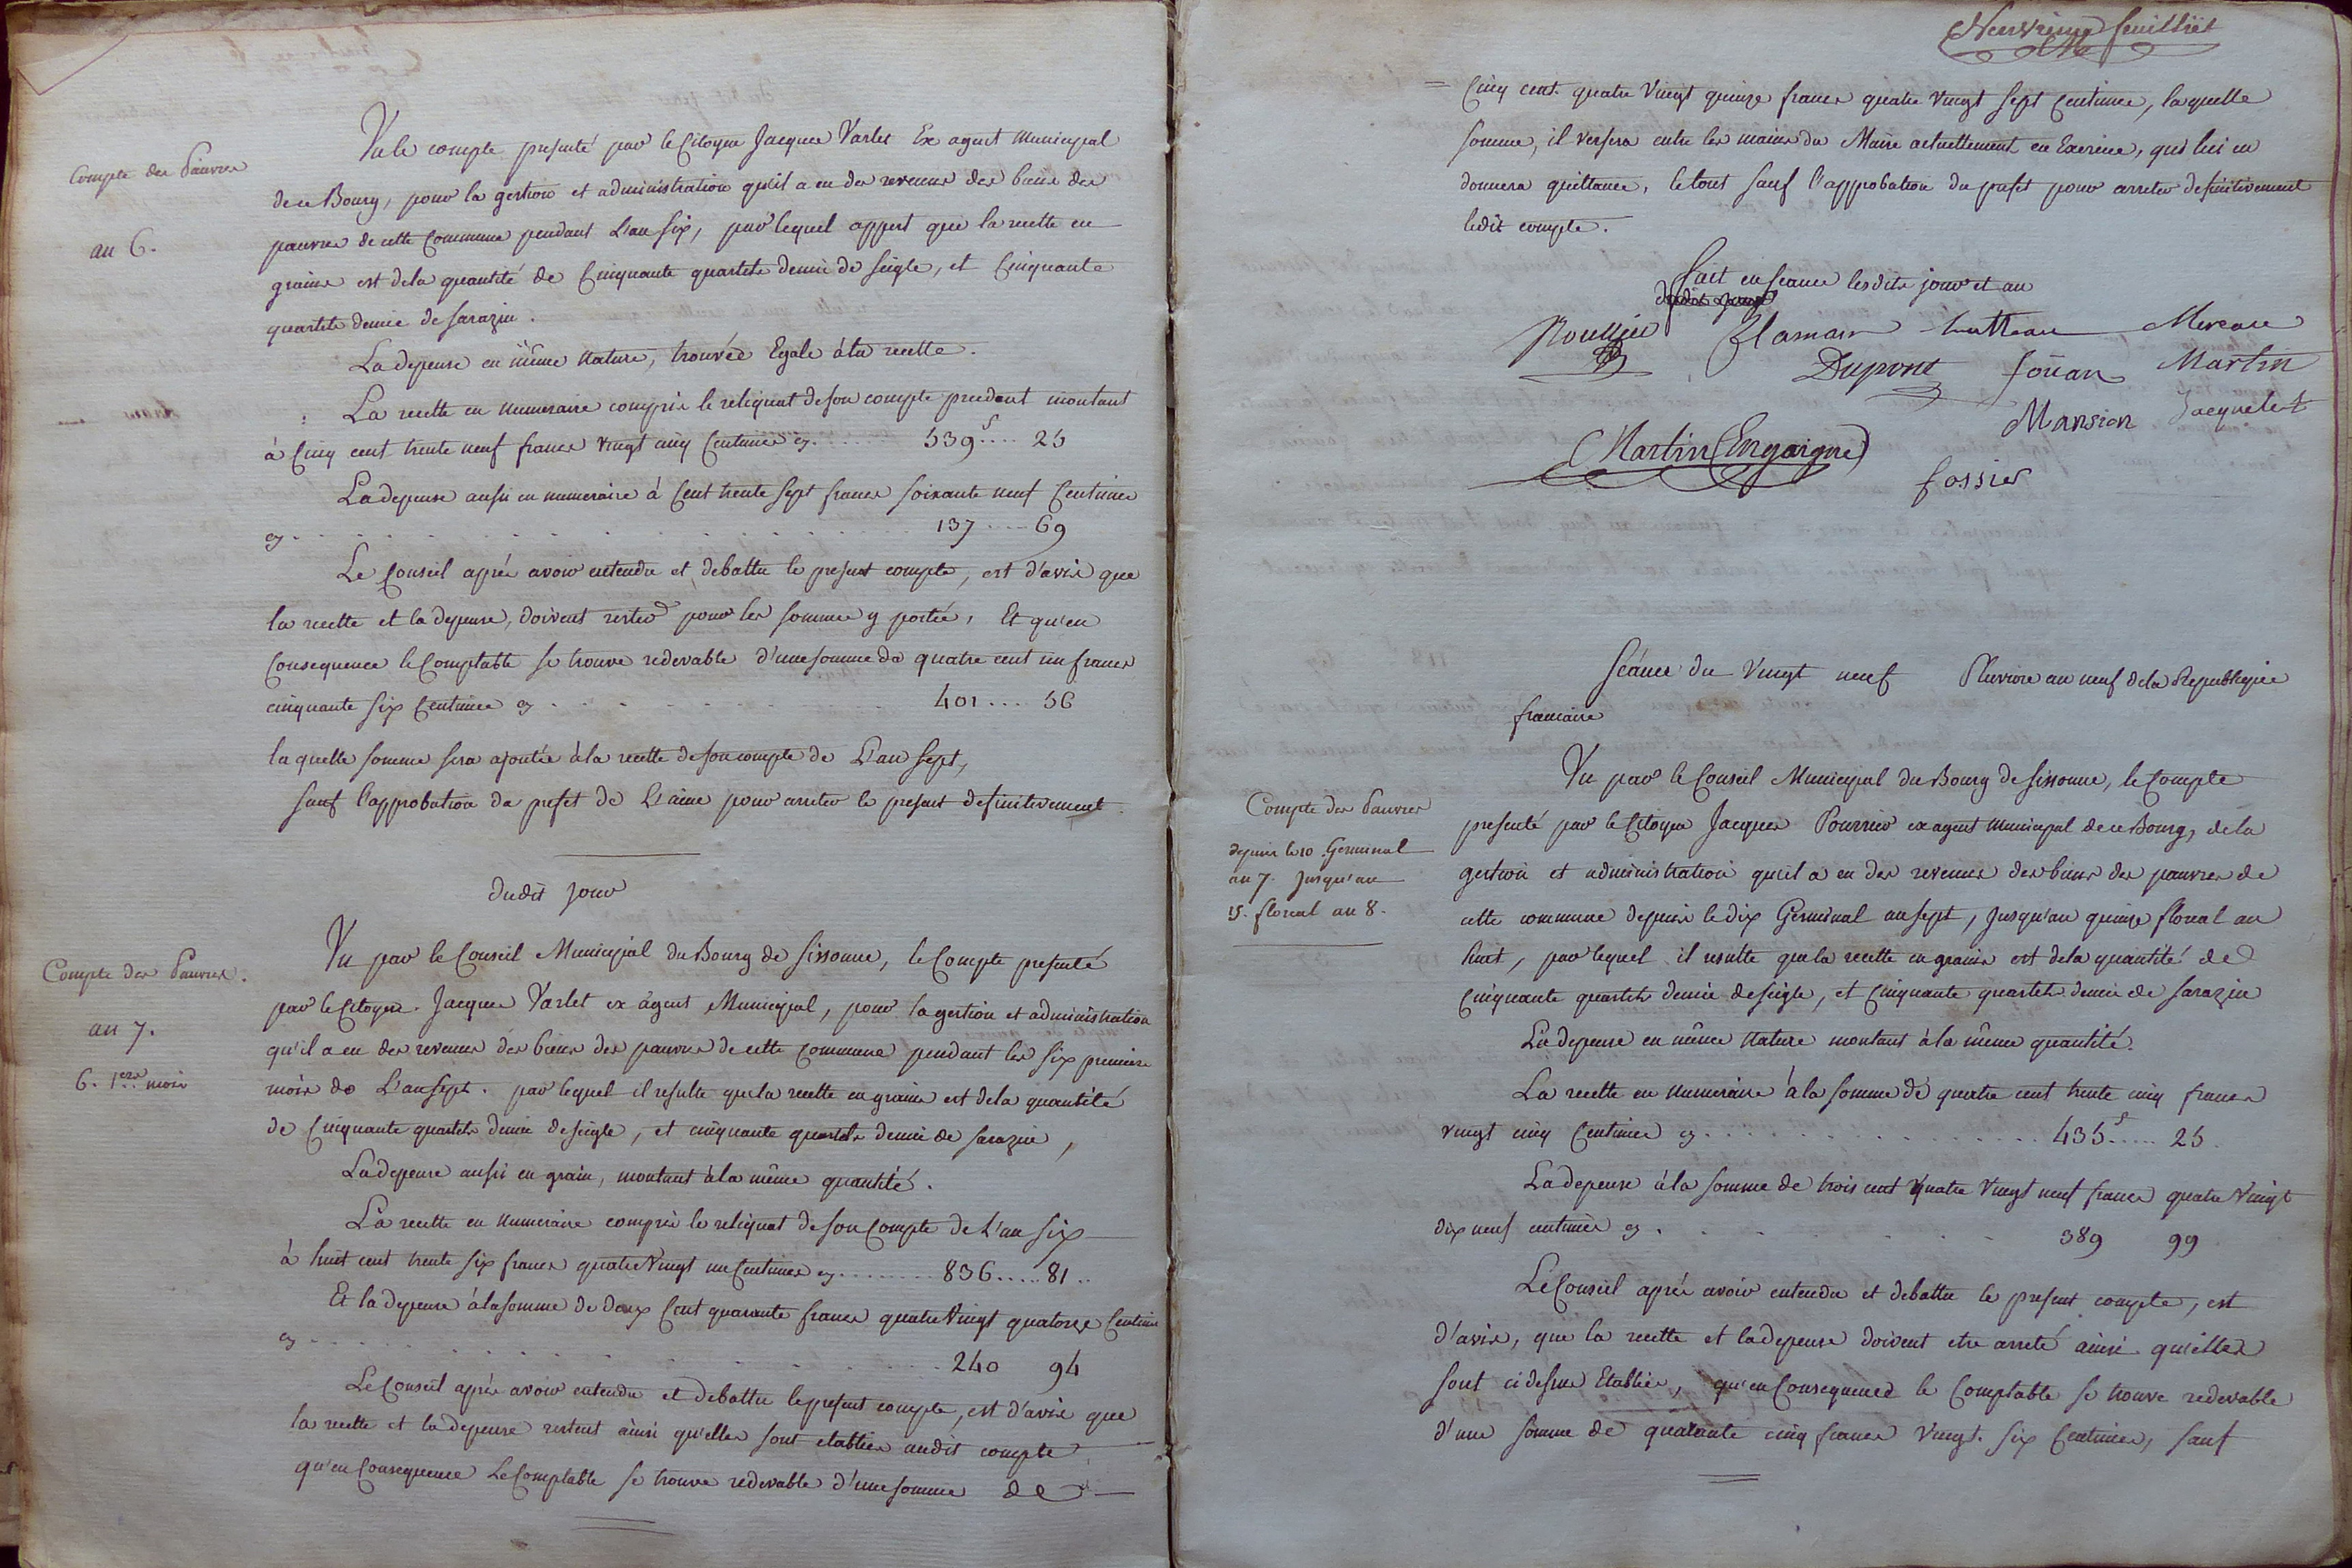 Compte des Pauvres
an 6.
Vu le compte presenté par le Citoyen Jacques Varlet Ex agent Municipal
de ce Bourg, pour la gestion et administration qu'il a eu des revenus des biens des
pauvres de cette Commune pendant L'an six, par lequel appert que la recette en
grains est de la quantité de Cinquante quartels demie de seigle, et Cinquante
quartels demie de sarazin.
La depense en même Nature, trouvée Egale à la recette.
La recette en Numeraire compris le reliquat de son compte precedent montant
à Cinq cent trente neuf francs vingt cinq Centimes cy. ..... 539 f .... 25
La depense aussi en numeraire à Cent trente sept francs soixante neuf Centimes
cy. ..... 137 .... 69
Le Conseil après avoir entendu et debattu le present compte, est d'avis que
la recette et la depense, doivent rester pour les sommes y portée, Et qu'en
Consequence le Comptable se trouve redevable d'une somme de quatre cent un francs
cinquante six Centimes cy ..... 401 .... 56
laquelle somme sera ajoutée à la recette de son compte de L'an sept,
sauf l'approbation du prefet de L'aisne pour arreter le present definitivement.
dudit jour
Compte des Pauvres.
an 7.
6. 1ers mois
Vu par le Conseil Municipal du Bourg de Sissonne, le Compte presenté
par le Citoyen Jacques Varlet ex agent Municipal, pour la gestion et administration
qu'il a eu des revenus des biens des pauvres de cette Commune pendant les six premiers
mois de L'an sept. par lequel il resulte que la recette en grains est de la quantité
de Cinquante quartels demie de seigle, et cinquante quartels demie de sarazin,
La depense aussi en grain, montant à la même quantité.
La recette en Numeraire compris le reliquat de son Compte de L'an six
à huit cent trente six francs quatre Vingt un Centimes cy ..... 836 ..... 81 ..
Et la depense à la somme de deux Cent quarante francs quatre Vingt quatorze Centimes
cy ..... 240 94
Le Conseil après avoir entendu et debattu le present compte, est d'avis que
la recette et la depense restent ainsi qu'elles sont etablies audit compte
qu'en Consequence Le Comptable se trouve redevable d'une somme de
feuillet
Cinq cent quatre Vingt quinze francs quatre vingt sept Centimes, laquelle
somme, il versera entre les mains du Maire actuellement en Exercice, qui lui en
donnera quittance, le tout sauf l'approbation du prefet pour arreter definitivement
ledit compte.
fait en seance lesdits jour et an
dudit jour
Flamain Mercare
Dupont Joüan Martin
Mansion Jacquelet
Martin Engaigne
fossier
Séance du Vingt neuf Pluviose an neuf de la Republique
francaise
Compte des Pauvres
depuis le 10 Germinal
an 7. Jusqu'au
15. floreal an 8.
Vu par le Conseil Municipal du Bourg de Sissonne, le Compte
presenté par le Citoyen Jacques Pourrier ex agent Municipal de ce Bourg, de la
gestion et administration qu'il a eu des revenus des biens des pauvres de
cette commune depuis le dix Germinal an sept, Jusqu'au quinze floreal an
huit, par lequel il resulte que la recette en grains est de la quantité de
Cinquante quartels demie de seigle, et Cinquante quartels demie de sarazin
La depense en même Nature montant à la même quantité.
La recette en Numeraire à la somme de quatre cent trente cinq francs
vingt cinq Centimes cy ..... 435 f ..... 25
La depense à la somme de trois cent quatre Vingt neuf francs quatre Vingt
dix neuf centimes cy ..... 389 99
Le Conseil après avoir entendu et debattu le present compte, est
d'avis, que la recette et la depense doivent etre arreté ainsi qu'elles
sont ci dessus Etablies, qu'en Consequence le Comptable se trouve redevable
d'une somme de quarante cinq francs Vingt six Centimes, sauf